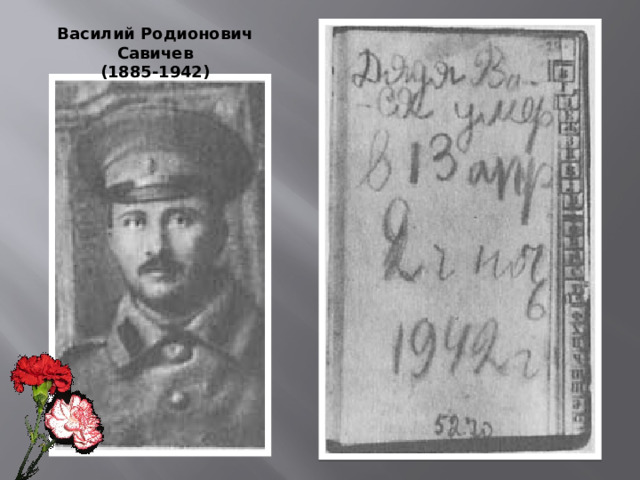 Василий Родионович
Савичев
(1885-1942)
Дядя Ва-
-ся умер
в 13 апр
2 ч ноч
6
1942 г